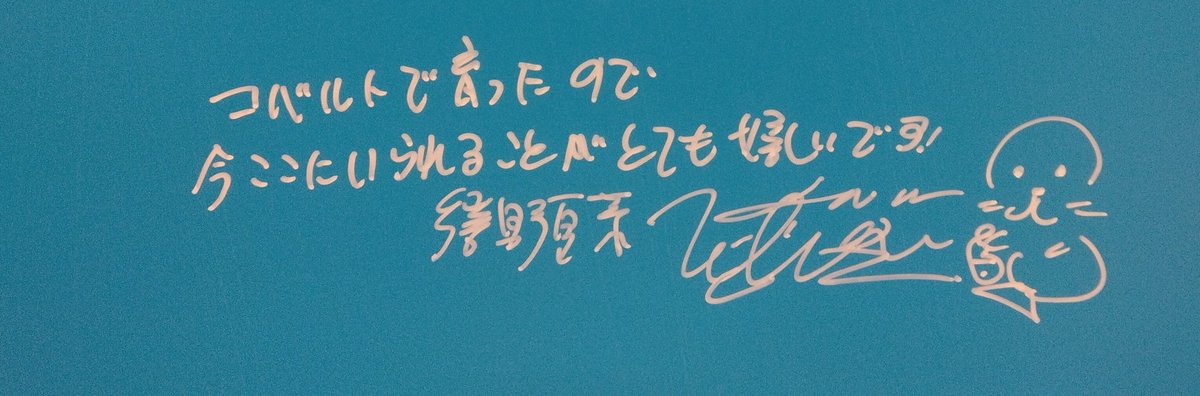 コバルトで育ったので
今ここにいられることがとても嬉しいです!